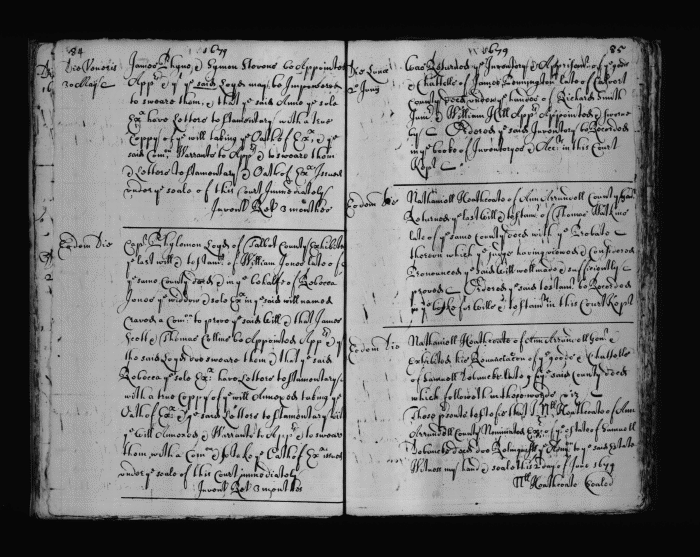 84
1679
Die Veneris
30 May
James Phyne, & Symon Stevens be Appointed
App. & yt ye said Loyes may be Impowered
to sweare them, & that ye said Anne ye sole
Exx have Letters testamentary with a true
Coppy of ye will taking ye Oath of Exx, & ye
said Com. Warrants to App. & to sweare them
& Letters testamentary & Oath of Exx Issued
under ye seale of this Court Immediately
Invent Ret 3 months
Eodem Die
Capt Phylemon Loyes of Talbot County Exhibited
ye last will & testamt of William Jones late of
ye same County decd & in ye behalfe of Rebecca
Jones ye widdow & sole Exx in ye said will named
craved a Com. to prove ye said will & that James
Scott & Thomas Collins be Appointed App. & yt
the said Loyes doe sweare them & that ye said
Rebecca ye sole Exx have Letters testamentary
with a true Coppy of ye will Annexed taking ye
Oath of Exx & ye said Letters testamentary with
ye will Annexed & Warrants to App. & to sweare
them with a Com. & to take ye Oath of Exx issued
under ye seale of this Court immediately
Invent Ret 3 months
1679
85
Die Lunae
2 Juny
Was Returned ye Inventory & Apprisemt of ye goods
& chattells of James late of Calvert
County decd under ye hands of Richard Smith
Junr & William Hill App. Appointed & sworne
&c Ordered ye said Inventory be Recorded
in ye booke of Inventorys & Acct. in this Court
Kept
Eodem Die
Nathaniell Heathcoate of Ann Arrundell County
Returned ye last will & testamt of Thomas Watkins
late of ye same County decd with ye Probate
thereon which ye Judge having viewed & Considered
Pronounced ye said will well made & sufficiently
proved Ordered ye said testamt be Recorded
in ye booke for wills & testamts in this Court Kept
Eodem Die
Nathaniell Heathcoate of Ann Arrundell
Exhibited his Renunciacon of ye goods & Chattells
of Samuell late of ye said County decd
which followeth in these words vizt
These presents testifie that I Nll Heathcoate of Ann
Arrundell County Nominated Exor of ye estate of Samuell
decd doe Relinquish ye Admr to ye said estate
Witness my hand & seale this 2 day of June 1679
Nll Heathcoate Sealed